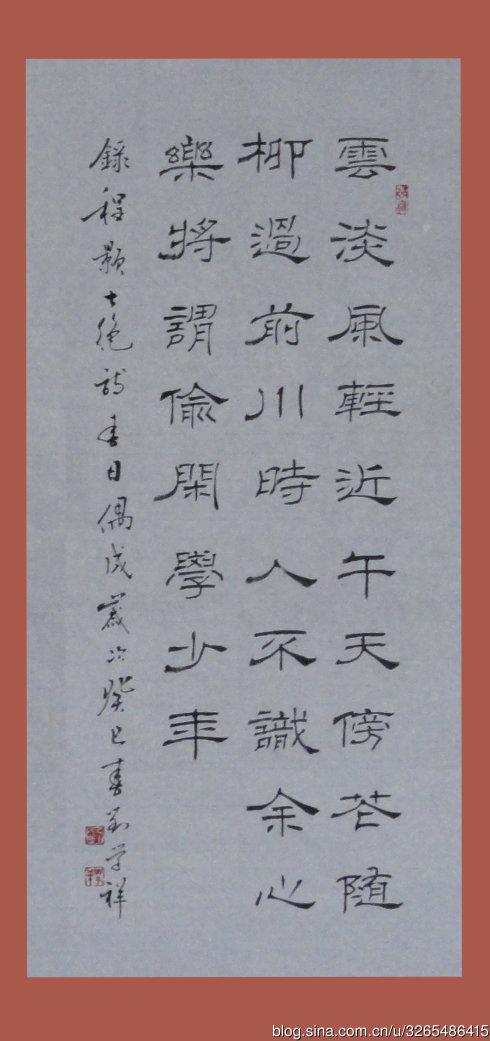 雲淡風輕近午天傍花随
柳過前川時人不識余心
樂將謂偷閑學少年
錄程颢七绝诗春日偶成歲次癸巳春刘学祥
blog.sina.com.cn/u/3265486415